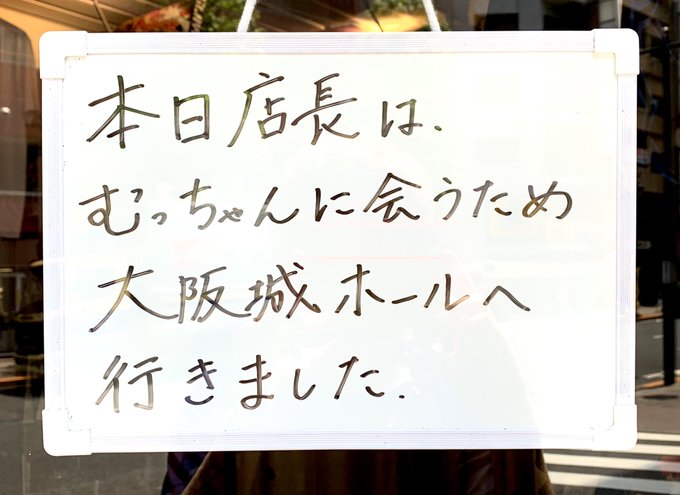 本日店長は、
むっちゃんに会うため
大阪城ホールへ
行きました.